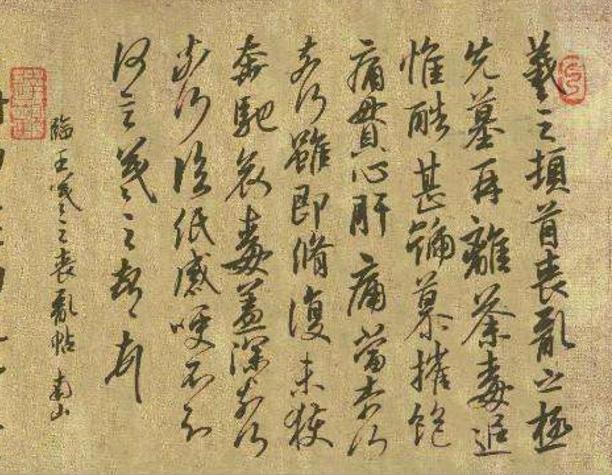 羲之頓首喪亂之極
先墓再離荼毒追
惟酷甚號慕摧絕
痛貫心肝痛當奈何
奈何雖即脩復未獲
奔馳哀毒益深奈何
奈何臨紙感哽不知
何言羲之頓首
臨王羲之喪亂帖 南山